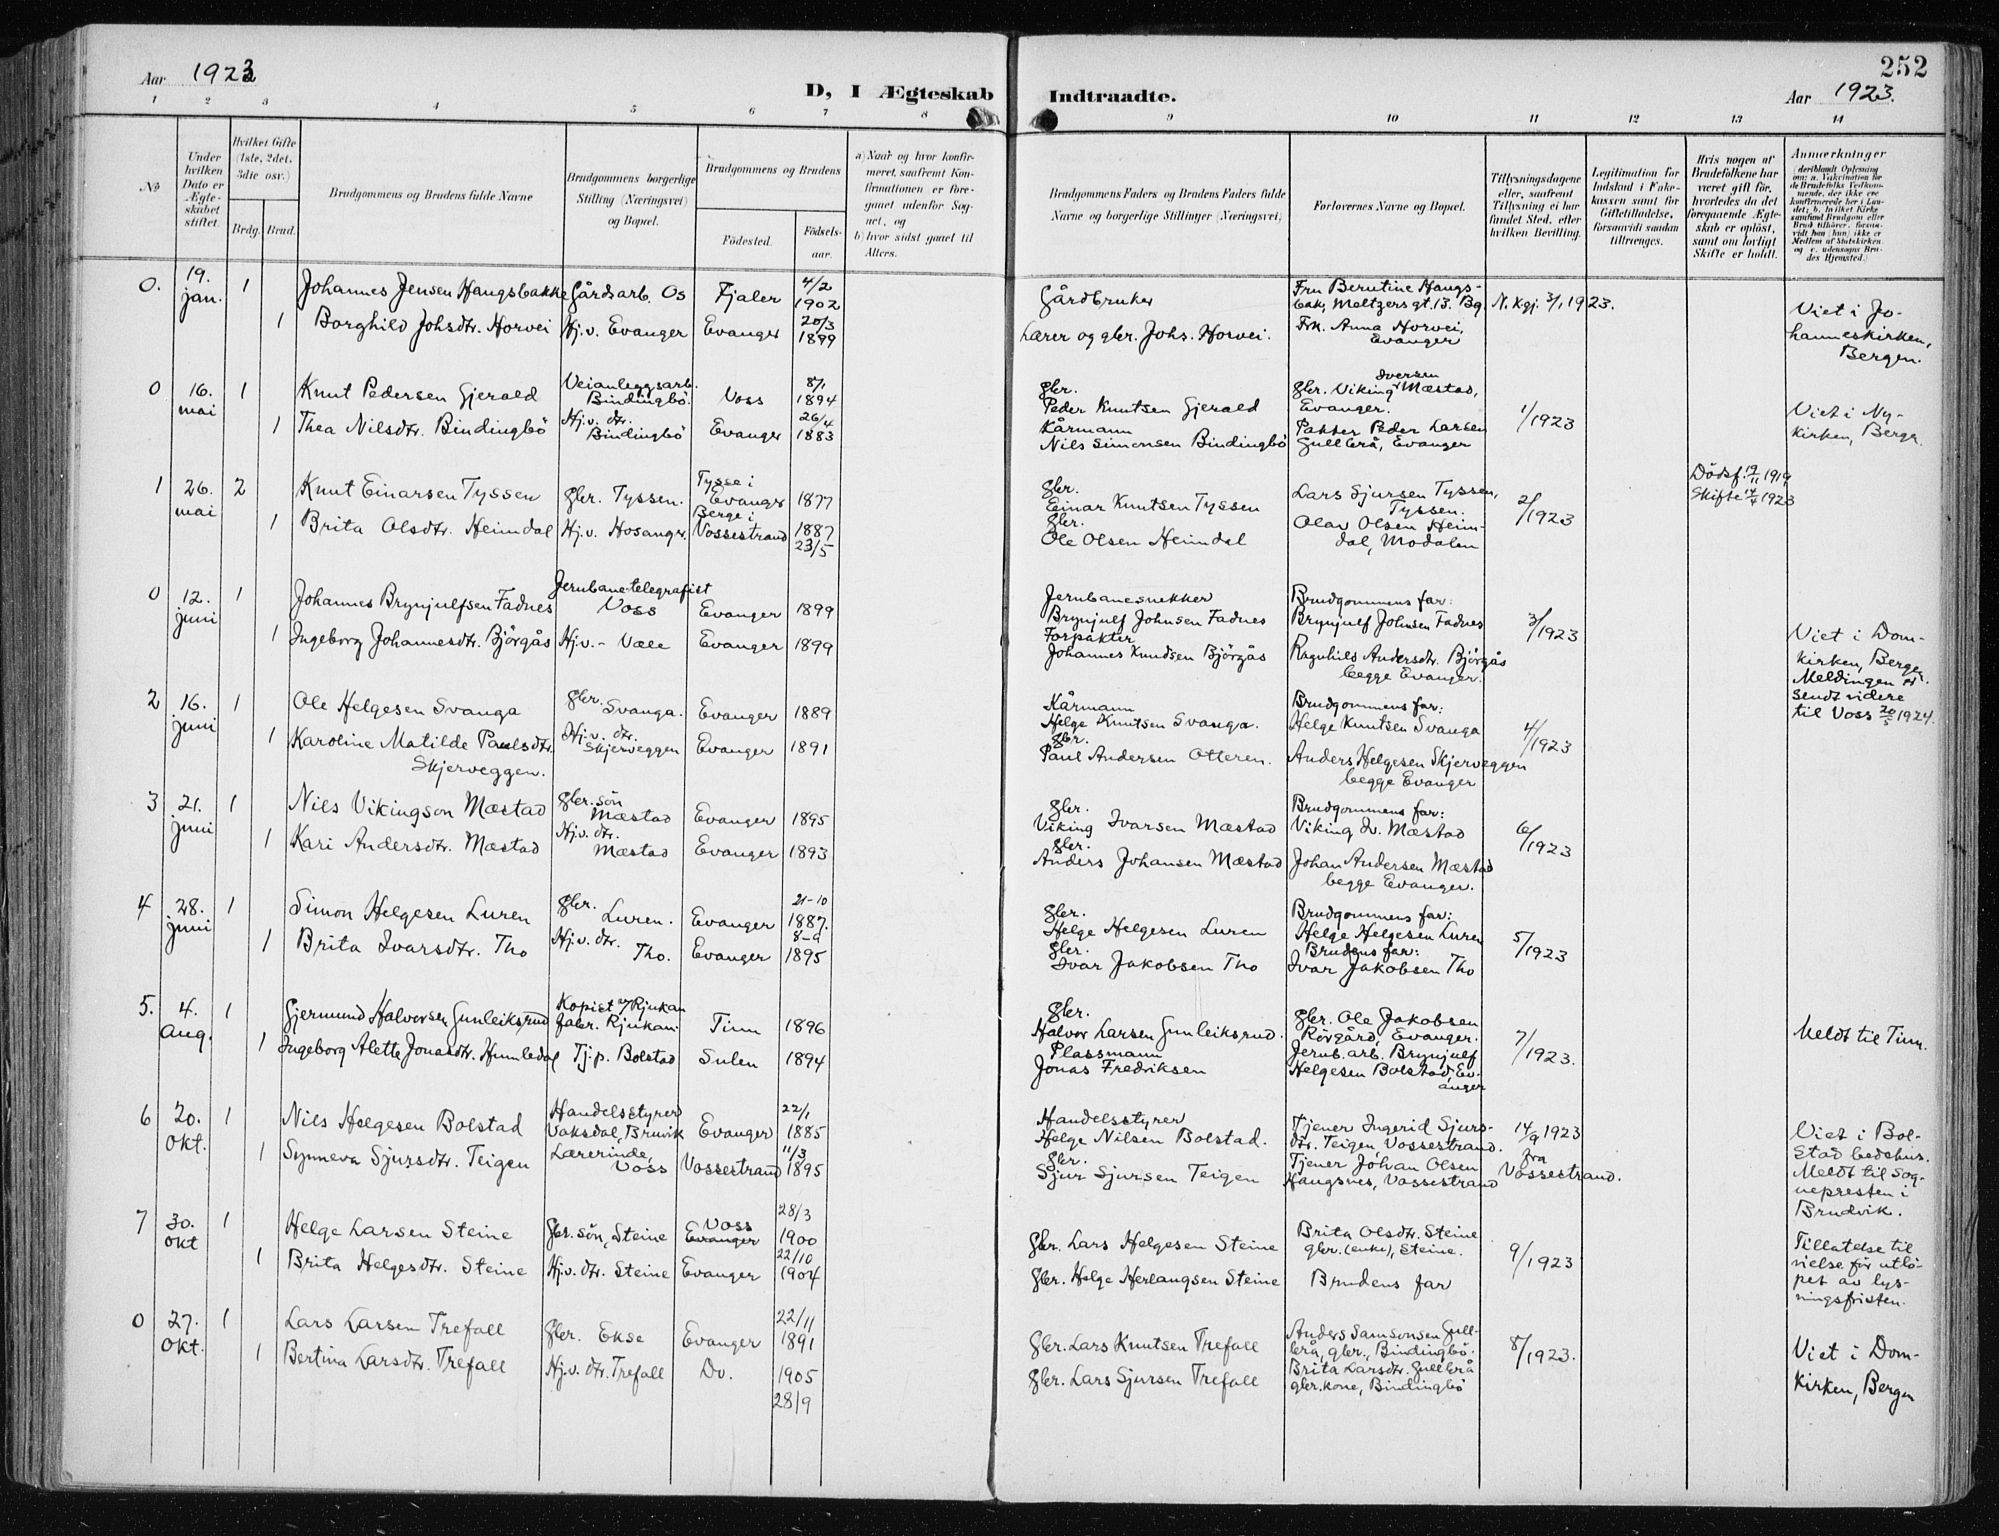 252
Aar 1923
D, I Ægteskab Indtraadte.
Aar 1923.
1 2 3 4 5 6 7 8 9 10 11 12 13 14
No
Under hvilken Dato er Ægteskabet stiftet.
Hvilket Gifte (1ste, 2det, 3die osv.)
Brdg. Brud.
Brudgommens og Brudens fulde Navne
Brudgommens borgerlige Stilling (Næringsvei) og Bopæl.
Brudgommens og Brudens
Födested.
Födsels-aar.
a) Naar og hvor konfirmeret, saafremt Konfirmationen er foregaaet udenfor Sognet, og
b) hvor sidst gaaet til Alters.
Brudgommens Faders og Brudens Faders fulde Navne og borgerlige Stillinger (Næringsvei)
Forlovernes Navne og Bopæl.
Tillysningsdagene eller, saafremt Tillysning ei har fundet Sted, efter hvilken Bevilling.
Legitimation for Indskud i Enkekassen samt for Giftetilladelse, forsaavidt saadan tiltrænges.
Hvis nogen af Brudefolkene har været gift för, hvorledes da det foregaaende Ægteskab er oplöst, samt om lovligt Skifte er holdt.
Anmærkninger
(deriblandt Oplysning om: a. Vakcination for de Brudefolks Vedkommende, der ikke ere konfirmerede her i Landet; b. hvilket Kirkesamfund Brudgom eller Brud tilhörer, forsaavidt han (hun) ikke er Medlem af Statskirken, og c. udensogns Brudes Hjemsted.)
0. 19. jan. 1 Johannes Jensen Haugsbakke Gårdsarb. Os Fjaler 4/2 1902
Gårdbruker
Fru Berntine Haugsbak, Meltzers gt. 13. Bg.
N. kgj. 3/1 1923.
Viet i Johanneskirken, Bergen.
1 Borghild Johsdtr. Horvei Hj.v. Evanger Evanger 20/3 1899
Lærer og gbr. Johs. Horvei.
Frk. Anna Horvei, Evanger
0 16. mai 1 Knut Pedersen Gjerald Veianleggsarb. Bindingbö. Voss 8/1 1894
gbr. Peder Knutsen Gjerald
gbr. Viking Iversen Mæstad, Evanger.
1/1923
Viet i Nykirken, Bergen
1 Thea Nilsdtr. Bindingbö Hj.v. dtr. Bindingbö Evanger 26/4 1883
Kårmann Nils Simonsen Bindingbö
Pakter Peder Larsen Gullbrå, Evanger
1 26. mai 2 Knut Einarsen Tyssen gbr. Tyssen. Tysse i Evanger 1877
gbr. Einar Knutsen Tyssen
Lars Sjursen Tyssen, Tyssen.
2/1923
Dödsf. 19/11 1919
Skifte 17/4 1923
1 Brita Olsdtr. Heimdal Hj.v. Hosanger. Berge i Vossestrand 1887 23/5
gbr. Ole Olsen Heimdal
Olav Olsen Heimdal, Modalen
0 12. juni 1 Johannes Brynjulfsen Fadnes Jernbanetelegrafist Voss Evanger 1899
Jernbanesnekker Brynjulf Johnsen Fadnes
Brudgommens far: Brynjulf Johnsen Fadnes
3/1923
Viet i Domkirken, Bergen. Meldingen er sendt videre til Voss 20/5 1924.
1 Ingeborg Johannesdtr. Björgås Hj.v. - Væle Evanger 1899
Forpakter Johannes Knudsen Björgås
Ragnhild Andersdtr. Björgås begge Evanger.
2 16. juni 1 Ole Helgesen Svanga gbr. Svanga. Evanger 1889
Kårmann Helge Knutsen Svanga.
Brudgommens far: Helge Knutsen Svanga
4/1923
1 Karoline Matilde Paulsdtr. Skjerveggen. Hj.v. dtr. Skjerveggen Evanger 1891
gbr. Paul Andersen Otteren.
Anders Helgesen Skjerveggen begge Evanger
3 21. juni 1 Nils Vikingson Mæstad gbr. sön Mæstad Evanger 1895
gbr. Viking Ivarsen Mæstad
Brudgommens far: Viking Iv. Mæstad
6/1923
1 Kari Andersdtr. Mæstad Hj.v. dtr. Mæstad Evanger 1893
gbr. Anders Johansen Mæstad
Johan Andersen Mæstad begge Evanger.
4 28. juni 1 Simon Helgesen Luren gbr. Luren. Evanger 21-10 1887.
gbr. Helge Helgesen Luren
Brudgommens far: Helge Helgesen Luren
5/1923
1 Brita Ivarsdtr. Tho Hj.v. dtr. Tho. Evanger 8-9 1895
gbr. Ivar Jakobsen Tho
Brudens far: Ivar Jakobsen Tho
5. 4. Aug. 1 Gjermund Halvorsen Gunleiksrud Kopist v/ Rjukan fabr. Rjukan. Tinn 1896
gbr. Halvor Larsen Gunleiksrud.
gbr. Ole Jakobsen Rörgård, Evanger.
7/1923.
Meldt til Tinn.
1 Ingeborg Alette Jonasdtr. Humledal Tj.p. Bolstad Sulen 1894
Plassmann Jonas Fredriksen
Jernb. arb. Brynjulf Helgesen Bolstad, Evanger
6 20. okt. 1 Nils Helgesen Bolstad Handelsstyrer Vaksdal, Bruvik Evanger 22/1 1885
Handelsstyrer Helge Nilsen Bolstad.
Tjener Ingerid Sjursdtr. Teigen, Vossestrand.
14/9 1923 fra Vossestrand.
Viet i Bolstad bedehus. Meldt til Sognepresten i Brudvik.
1 Synneva Sjursdtr. Teigen Lærerinde, Voss Vossestrand 11/3 1895
gbr. Sjur Sjursen Teigen
Tjener Johan Olsen Haugsnes, Vossestrand
7 30. okt 1 Helge Larsen Steine Gbr. sön, Steine Voss Evanger 28/3 1900
Gbr. Lars Helgesen Steine
Brita Olsdtr. Steine gbr. (enke), Steine.
9/1923
Tillatelse til vielse för utlöpet av lysningsfristen.
1 Brita Helgesdtr. Steine Hj.v. dtr. Steine Evanger 22/10 1904
Gbr. Helge Herlaugsen Steine
Brudens far
0 27. okt. 1 Lars Larsen Trefall Gbr. Ekse Evanger 22/11 1891
Gbr. Lars Knutsen Trefall
Anders Samsonsen Gullbrå, gbr., Bindingbö.
8/1923.
Viet i Domkirken, Bergen
1 Bertina Larsdtr. Trefall Hj.v. dtr. Trefall Do. 1905 28/9
Gbr. Lars Sjursen Trefall
Brita Larsdtr. Gullbrå gbr. kone, Bindingbö